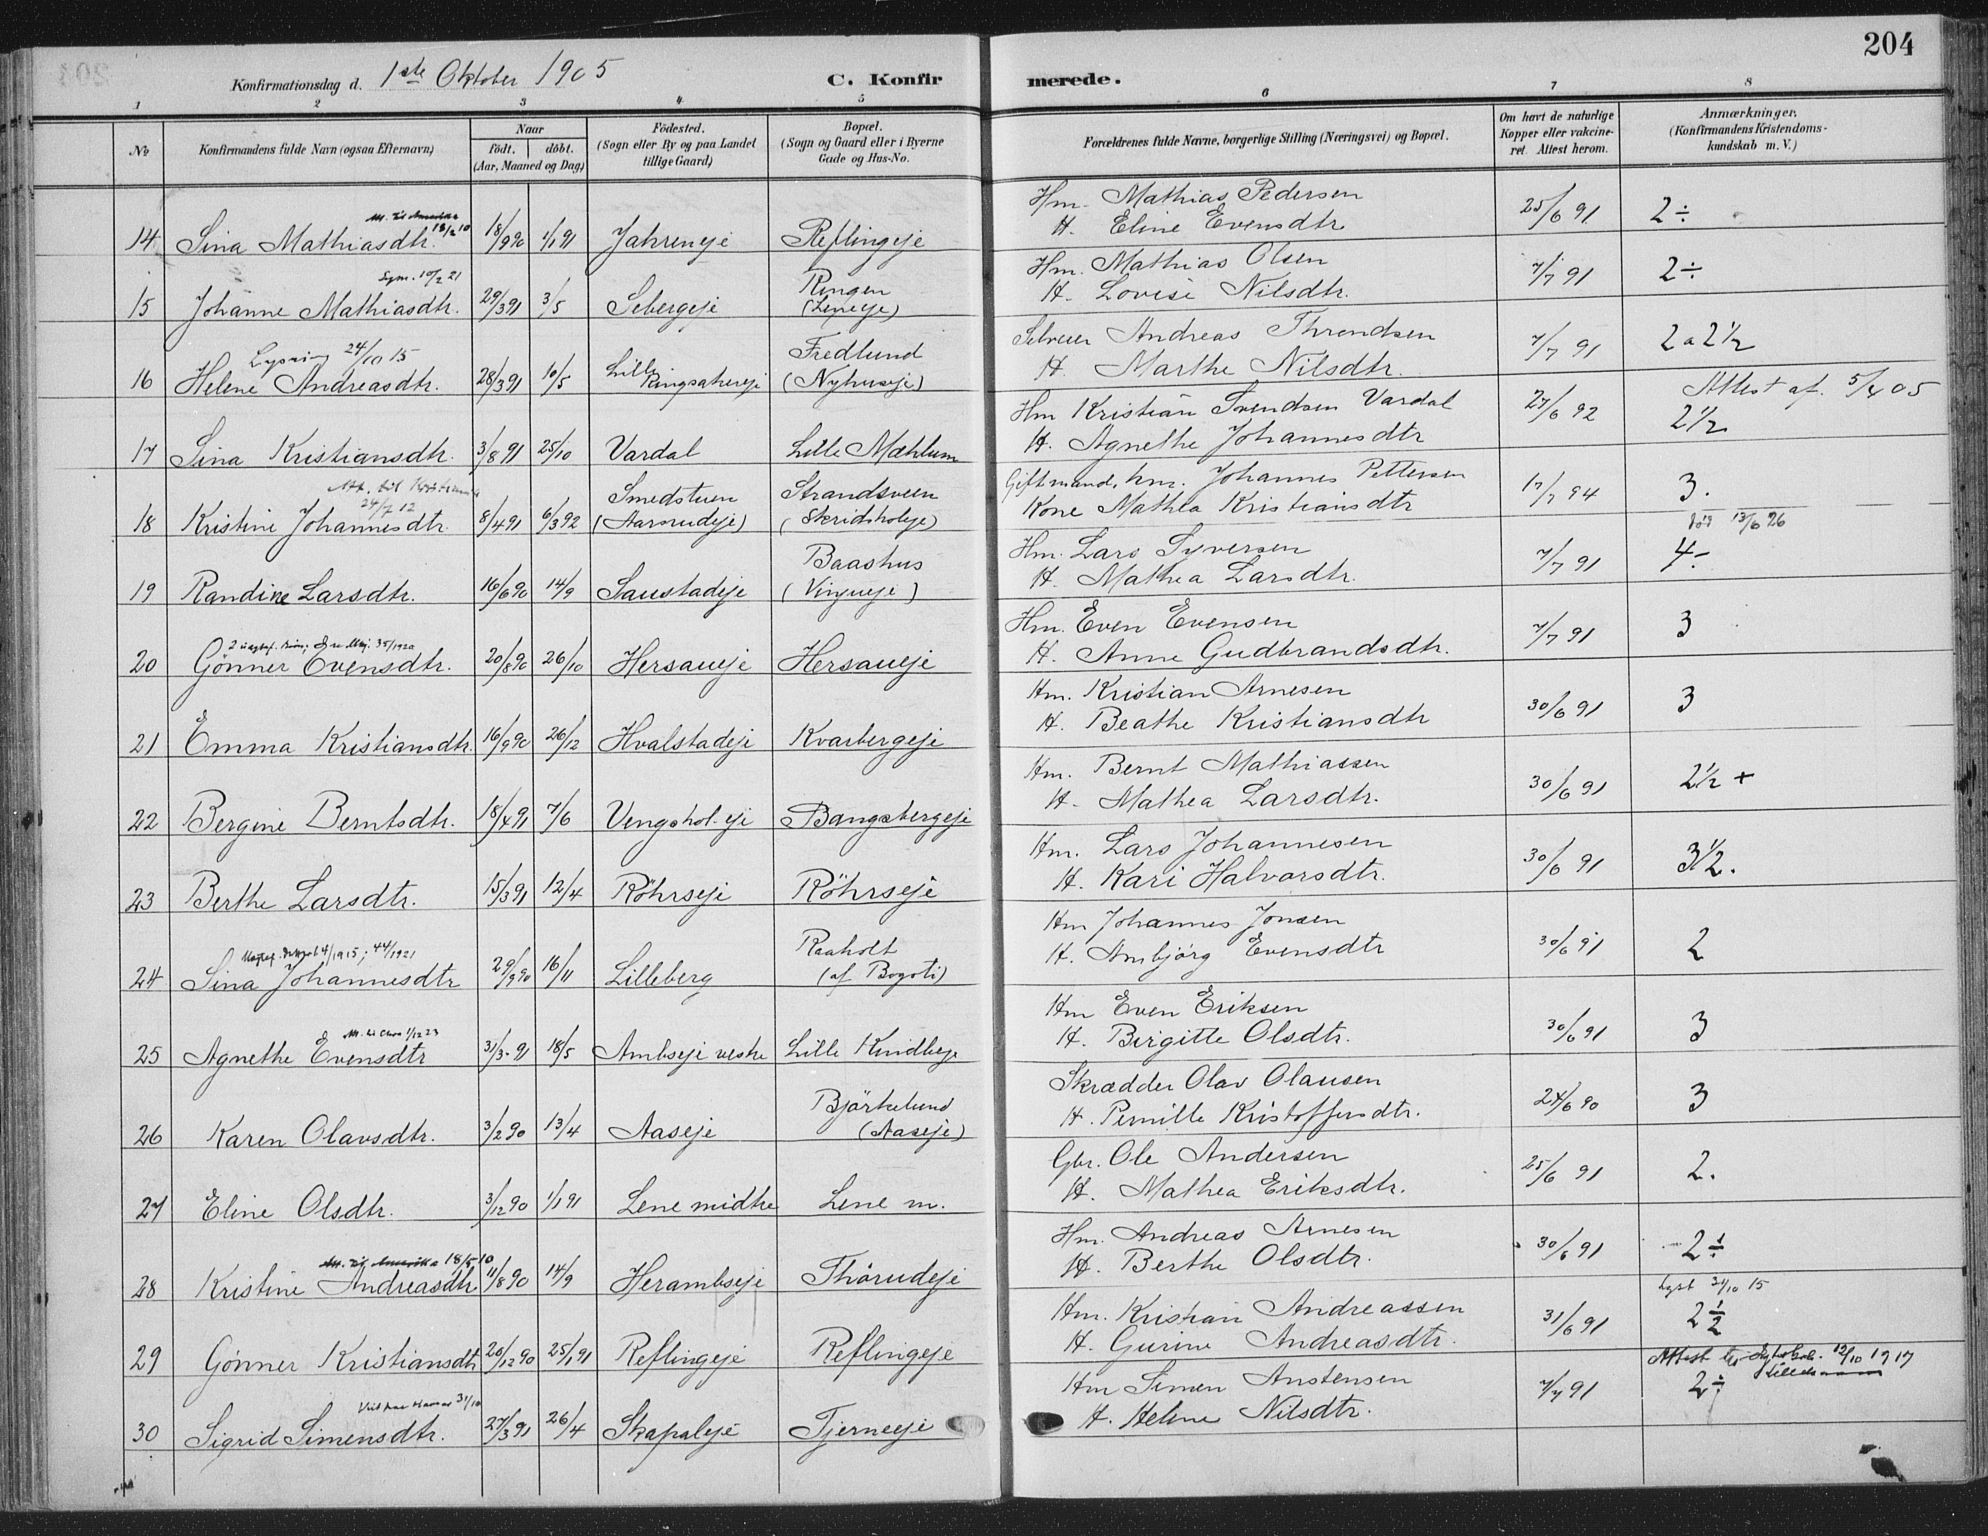 204
Konfirmationsdag d. 1ste Oktober 1905 C. Konfirmerede.
1 2 3 4 5 6 7 8
No
Konfirmandens fulde Navn (ogsaa Efternavn)
Naar
født. døbt.
(Aar, Maaned og Dag)
Fødested.
(Sogn eller By og paa Landet tillige Gaard)
Bopæl.
(Sogn og Gaard eller i Byerne Gade og Hus-No.
Forældrenes fulde Navne, borgerlige Stilling (Næringsvei) og Bopæl.
Om havt de naturlige Kopper eller vakcineret. Attest herom.
Anmærkninger.
(Konfirmandens Kristendomskundskab m. V.)
Att. til Amerika 18/2 10
14 Sina Mathiasdtr. 18/9 90 1/1 91 Jahreneje Reflingeje
Hm. Mathias Pedersen
H. Eline Evensdtr 25/6 91 2 ÷
10/2 21
15 Johanne Mathiasdtr. 29/3 91 3/5 Sebergeje Ringen (Leneje)
Hm. Mathias Olsen
H. Lovise Nilsdtr. 7/7 91 2 ÷
Lysning 24/10 15
16 Helene Andreasdtr. 28/3 91 10/5 Lille Ringsakereje Fredlund (Nyhuseje)
Selveier Andreas Throndsen
H. Marthe Nilsdtr. 7/7 91 2 a 2 1/2
17 Sina Kristiansdtr. 3/8 91 25/10 Vardal Lille Mæhlum
Hm Kristian Svendsen Vardal
H. Agnethe Johannesdtr 27/6 92 Attest af. 5/4 05
2 1/2
Att. til Kristiania 24/7 12
18 Kristine Johannesdtr 8/4 91 6/3 92 Smedstuen (Aarsrudeje) Strandsveen (Skridsholeje)
Giftmand, hm. Johannes Pettersen
Kone Mathea Kristiansdtr 17/7 94 3.
død 13/6 26
19 Randine Larsdtr. 16/6 90 14/9 Saustadeje Baashus (Vingneje)
Hm. Lars Syversen
H. Mathea Larsdtr. 7/7 91 4 -
20 Gönner Evensdtr. 20/8 90 26/10 Hersaueje Hersaueje
Hm. Even Evensen
H. Anne Gudbrandsdtr. 7/7 91 3
21 Emma Kristiansdtr. 16/9 90 26/12 Hvalstadeje Kvarbergeje
Hm. Kristian Arnesen
H. Beathe Kristiansdtr 30/6 91 3
22 Bergine Berntsdtr. 18/4 91 7/6 Vengshol.eje Bangsbergeje
Hm. Bernt Mathiassen
H. Mathea Larsdtr. 30/6 91 2 1/2 +
23 Berthe Larsdtr. 15/3 91 12/4 Röhrseje Röhrseje
Hm. Lars Johannesen
H. Kari Halvorsdtr. 30/6 91 3 1/2.
4/1915; 44/1921
24 Sina Johannesdtr 29/9 90 16/11 Lilleberg Raaholt (af Bogoti)
Hm Johannes Jonsen
H. Ambjörg Evensdtr 30/6 91 2
1/12 23
25 Agnethe Evensdtr 31/3 91 18/5 Ambseje vestre Lille Kindlieje
Hm Even Eriksen
H. Birgitte Olsdtr. 30/6 91 3
26 Karen Olavsdtr. 3/2 90 13/4 Aaseje Björkelund (Aaseje)
Skrædder Olav Olausen
H. Pernille Kristoffersdtr. 24/6 90 3
27 Eline Olsdtr. 3/12 90 1/1 91 Lene midtre Lene m.
Gbr. Ole Andersen
H. Mathea Eriksdtr. 25/6 91 2.
Att. til Amerika 18/5 10
28 Kristine Andreasdtr. 11/8 90 14/9 Herambseje Thörudeje
Hm. Andreas Arnesen
H. Berthe Olsdtr. 30/6 91 2 ÷
Lyst 31/10 15
29 Gönner Kristiansdtr 26/12 90 25/1 91 Reflingeje Reflingeje
Hm. Kristian Andreassen
H. Gurine Andreasdtr. 31/6 91 2 1/2
Attest 12/10 1917
30 Sigrid Simensdtr. 27/3 91 26/4 Skapaleje Tjerneeje
Hm Simen Anstensen
H. Helene Nilsdtr. 7/7 91 2 ÷